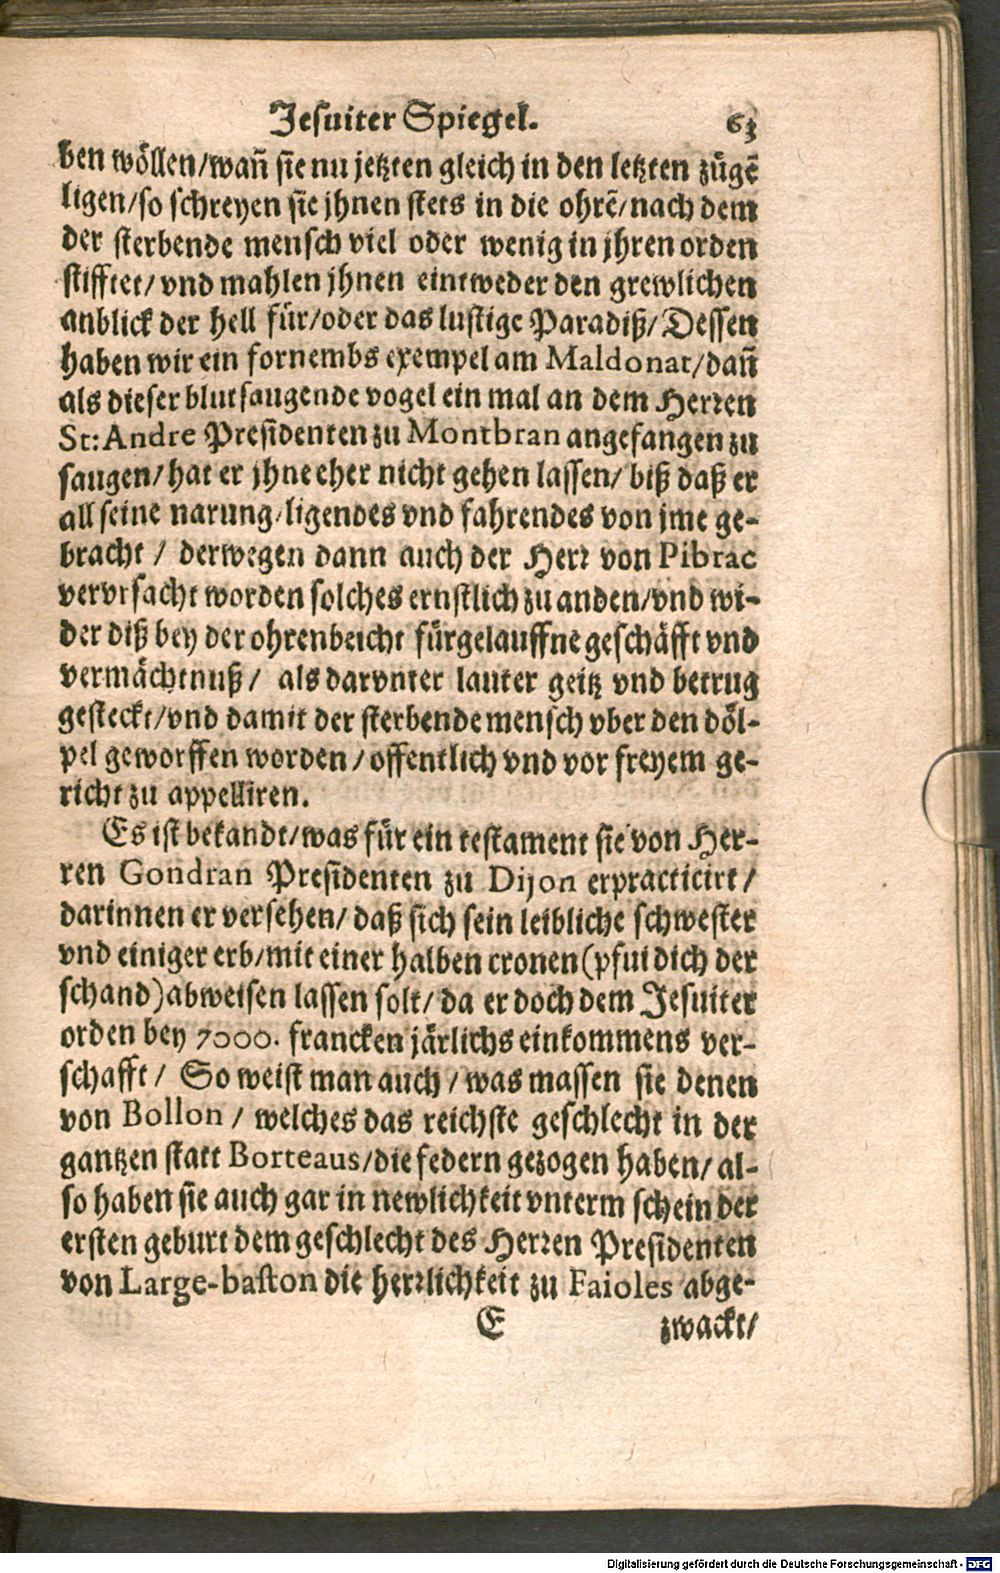 Jesuiter Spiegel. 63
ben wöllen/wañ sie nu jetzten gleich in den letzten zügē
ligen/so schreyen sie jhnen stets in die ohrē/nach dem
der sterbende mensch viel oder wenig in jhren orden
stifftet/vnd mahlen jhnen eintweder den grewlichen
anblick der hell für/oder das lustige Paradiß/Dessen
haben wir ein fornembs exempel am Maldonat/dañ
als dieser blutsaugende vogel ein mal an dem Herren
St:Andre Presidenten zu Montbran angefangen zu
saugen/hat er jhne eher nicht gehen lassen/ biß daß er
all seine narung/ligendes vnd fahrendes von jme ge-
bracht / derwegen dann auch der Herr von Pibrac
vervrsacht worden solches ernstlich zu anden/vnd wi-
der diß bey der ohrenbeicht fürgelauffne geschäfft vnd
vermächtnuß/ als darvnter lauter geitz vnd betrug
gesteckt/vnd damit der sterbende mensch vber den döl-
pel geworffen worden/offentlich vnd vor freyem ge-
richt zu appelliren.
Es ist bekandt/was für ein testament sie von Her-
ren Gondran Presidenten zu Dijon erpracticirt/
darinnen er versehen/daß sich sein leibliche schwester
vnd einiger erb/mit einer halben cronen(pfui dich der
schand)abweisen lassen solt/da er doch dem Jesuiter
orden bey 7000. francken järlichs einkommens ver-
schafft/ So weist man auch/was massen sie denen
von Bollon / welches das reichste geschlecht in der
gantzen statt Borteaus/die federn gezogen haben/al-
so haben sie auch gar in newlichkeit vnterm schein der
ersten geburt dem geschlecht des Herren Presidenten
von Large-baston die herrlichkeit zu Faioles abge-
E zwackt/
Digitalisierung gefördert durch die Deutsche Forschungsgemeinschaft - DFG